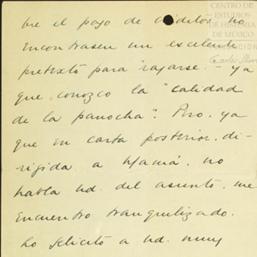 CENTRO DE
ESTUDIOS
DE HISTORIA
DE MEXICO
bre el pago de créditos no
encontrasen un excelente
pretexto para "rajarse" - ya
que conozco la "calidad
de la panocha". Pero, ya
que en carta posterior, di-
rigida a Mamá, no
habla Ud. del asunto, me
encuentro tranquilizado.
Lo felicito a Ud. muy